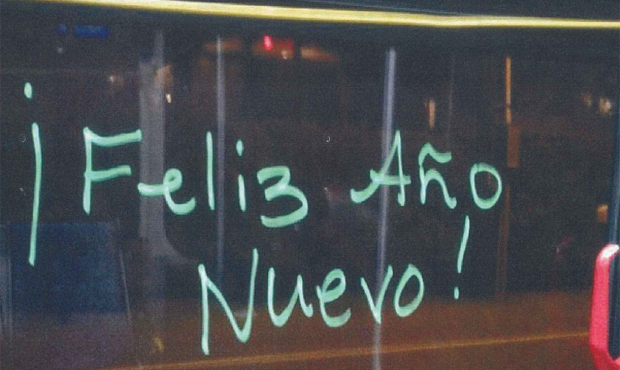 ¡Feliz Año
Nuevo!